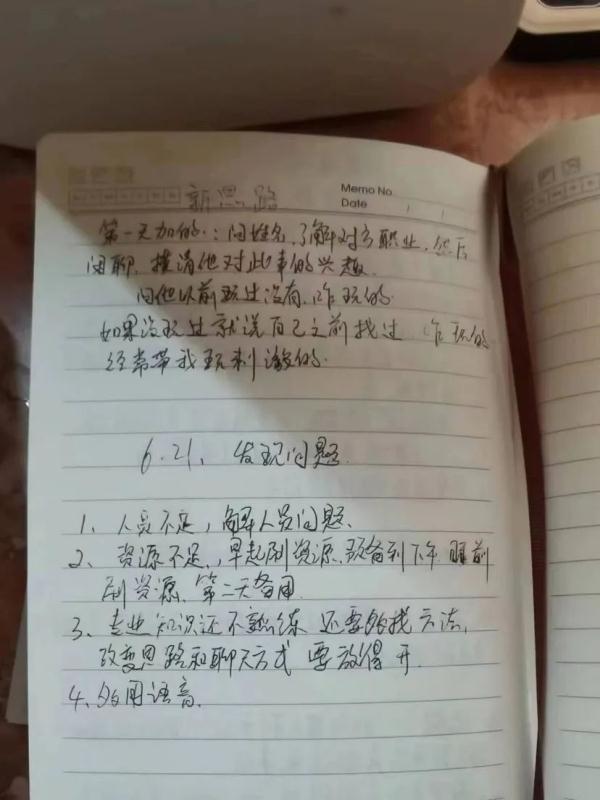 新思路
Memo No.
Date / /
第一天加的：问姓名，了解对方职业，然后
闲聊，摸清他对此事的兴趣
问他以前玩过没有，咋玩的
如果没玩过就说自己之前找过 咋玩的
经常带我玩刺激的
6.21、发现问题
1、人员不足，解人员问题、
2、资源不足，早起刷资源、预备到下午 睡前
刷资源、第二天备用
3、专业知识还不熟练 还要的找方法，
改变思路和聊天方式 要放得开
4、多用语音、